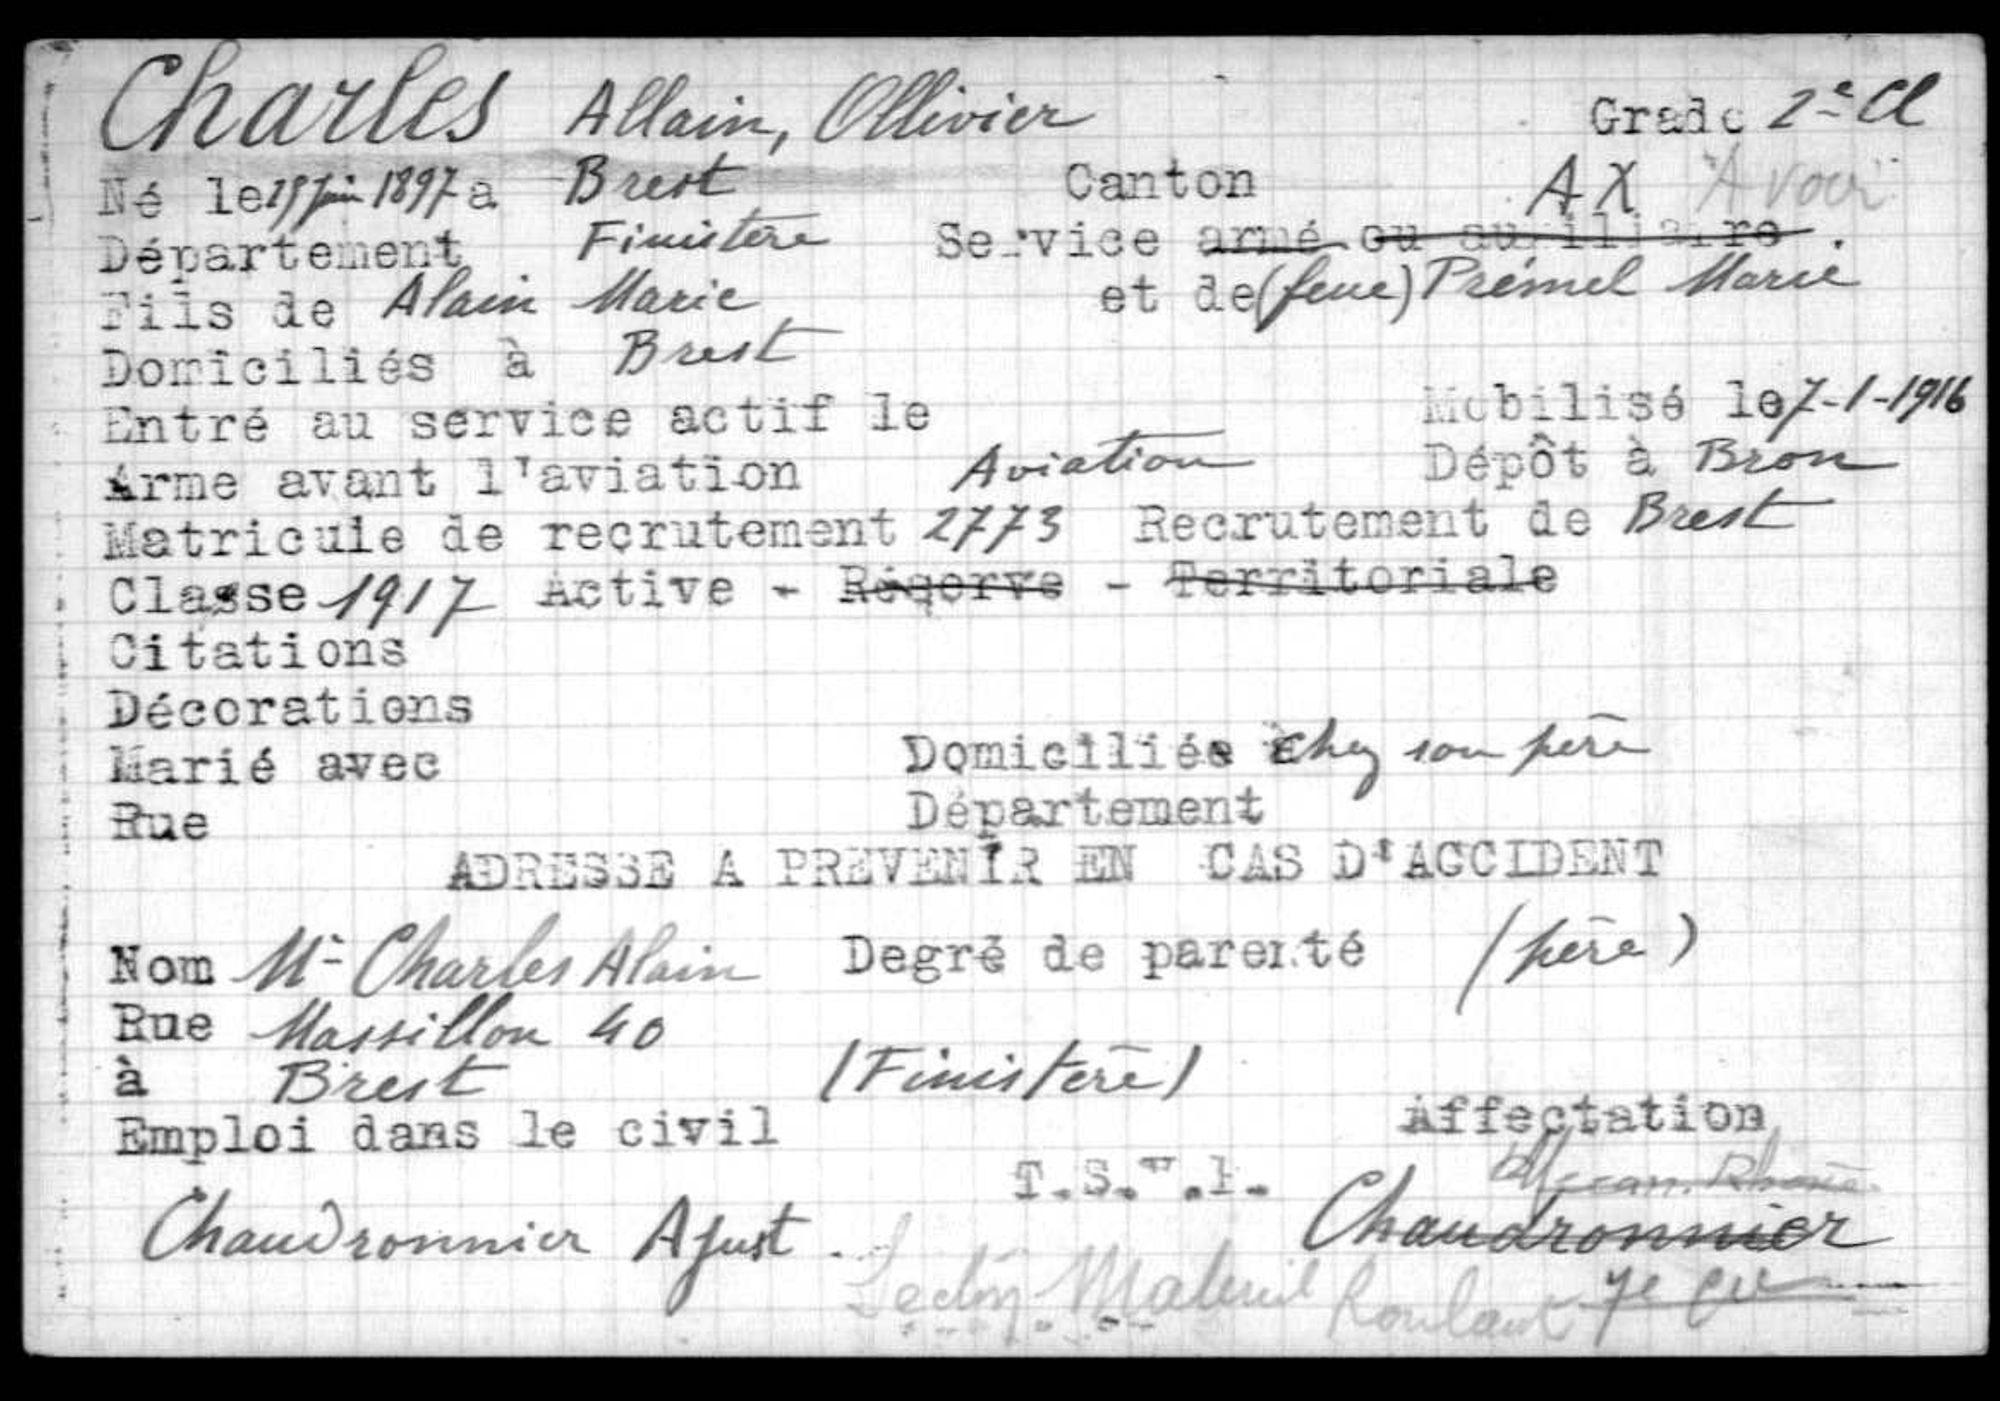 Charles Allain, Ollivier Grade 2e Cl
Né le 15 Juin 1897 a Brest Canton AX "Avoir"
Département Finistère Service armé ou auxiliaire.
Fils de Alain Marie et de (feue) Prémel Marie
Domiciliés à Brest
Entré au service actif le Mobilisé le 7-1-1916
Arme avant l'aviation Aviation Dépôt à Bron
Matricule de recrutement 2773 Recrutement de Brest
Classe 1917 Active - Réserve - Territoriale
Citations
Décorations
Marié avec Domiciliés chez son père
Rue Département
ADRESSE A PREVENIR EN CAS D'ACCIDENT
Nom Mr Charles Alain Degré de parenté (père)
Rue Massillon 40
à Brest (Finistère)
Emploi dans le civil Affectation
T.S.F.
Chaudronnier Ajust. Chaudronnier
Matériel Roulant 7e Cie